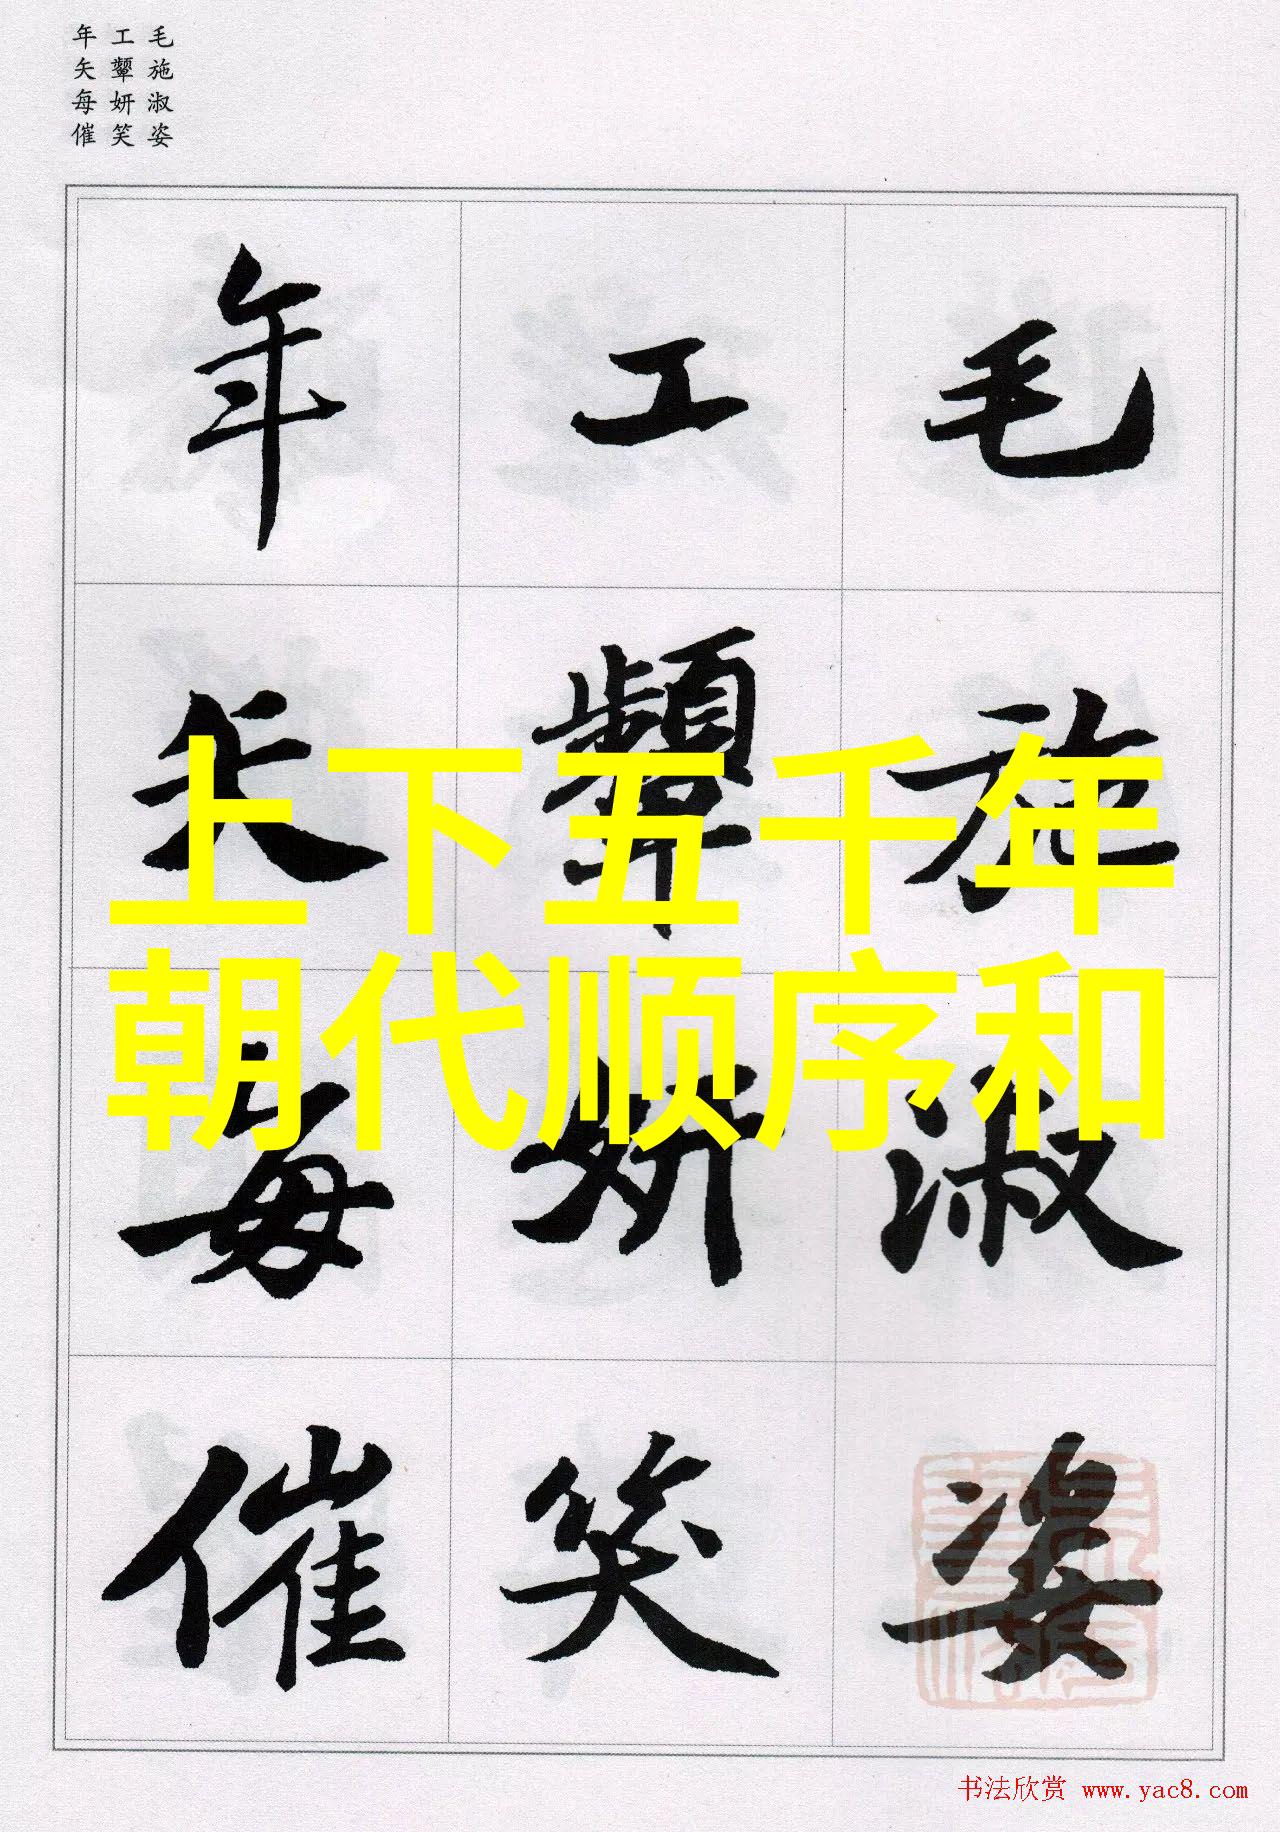 毛施淑姿
工颦妍笑
年矢每催
毛施淑姿
工颦妍笑
年矢每催
上下五千年
朝代顺序和
书法欣赏 www.yac8.com